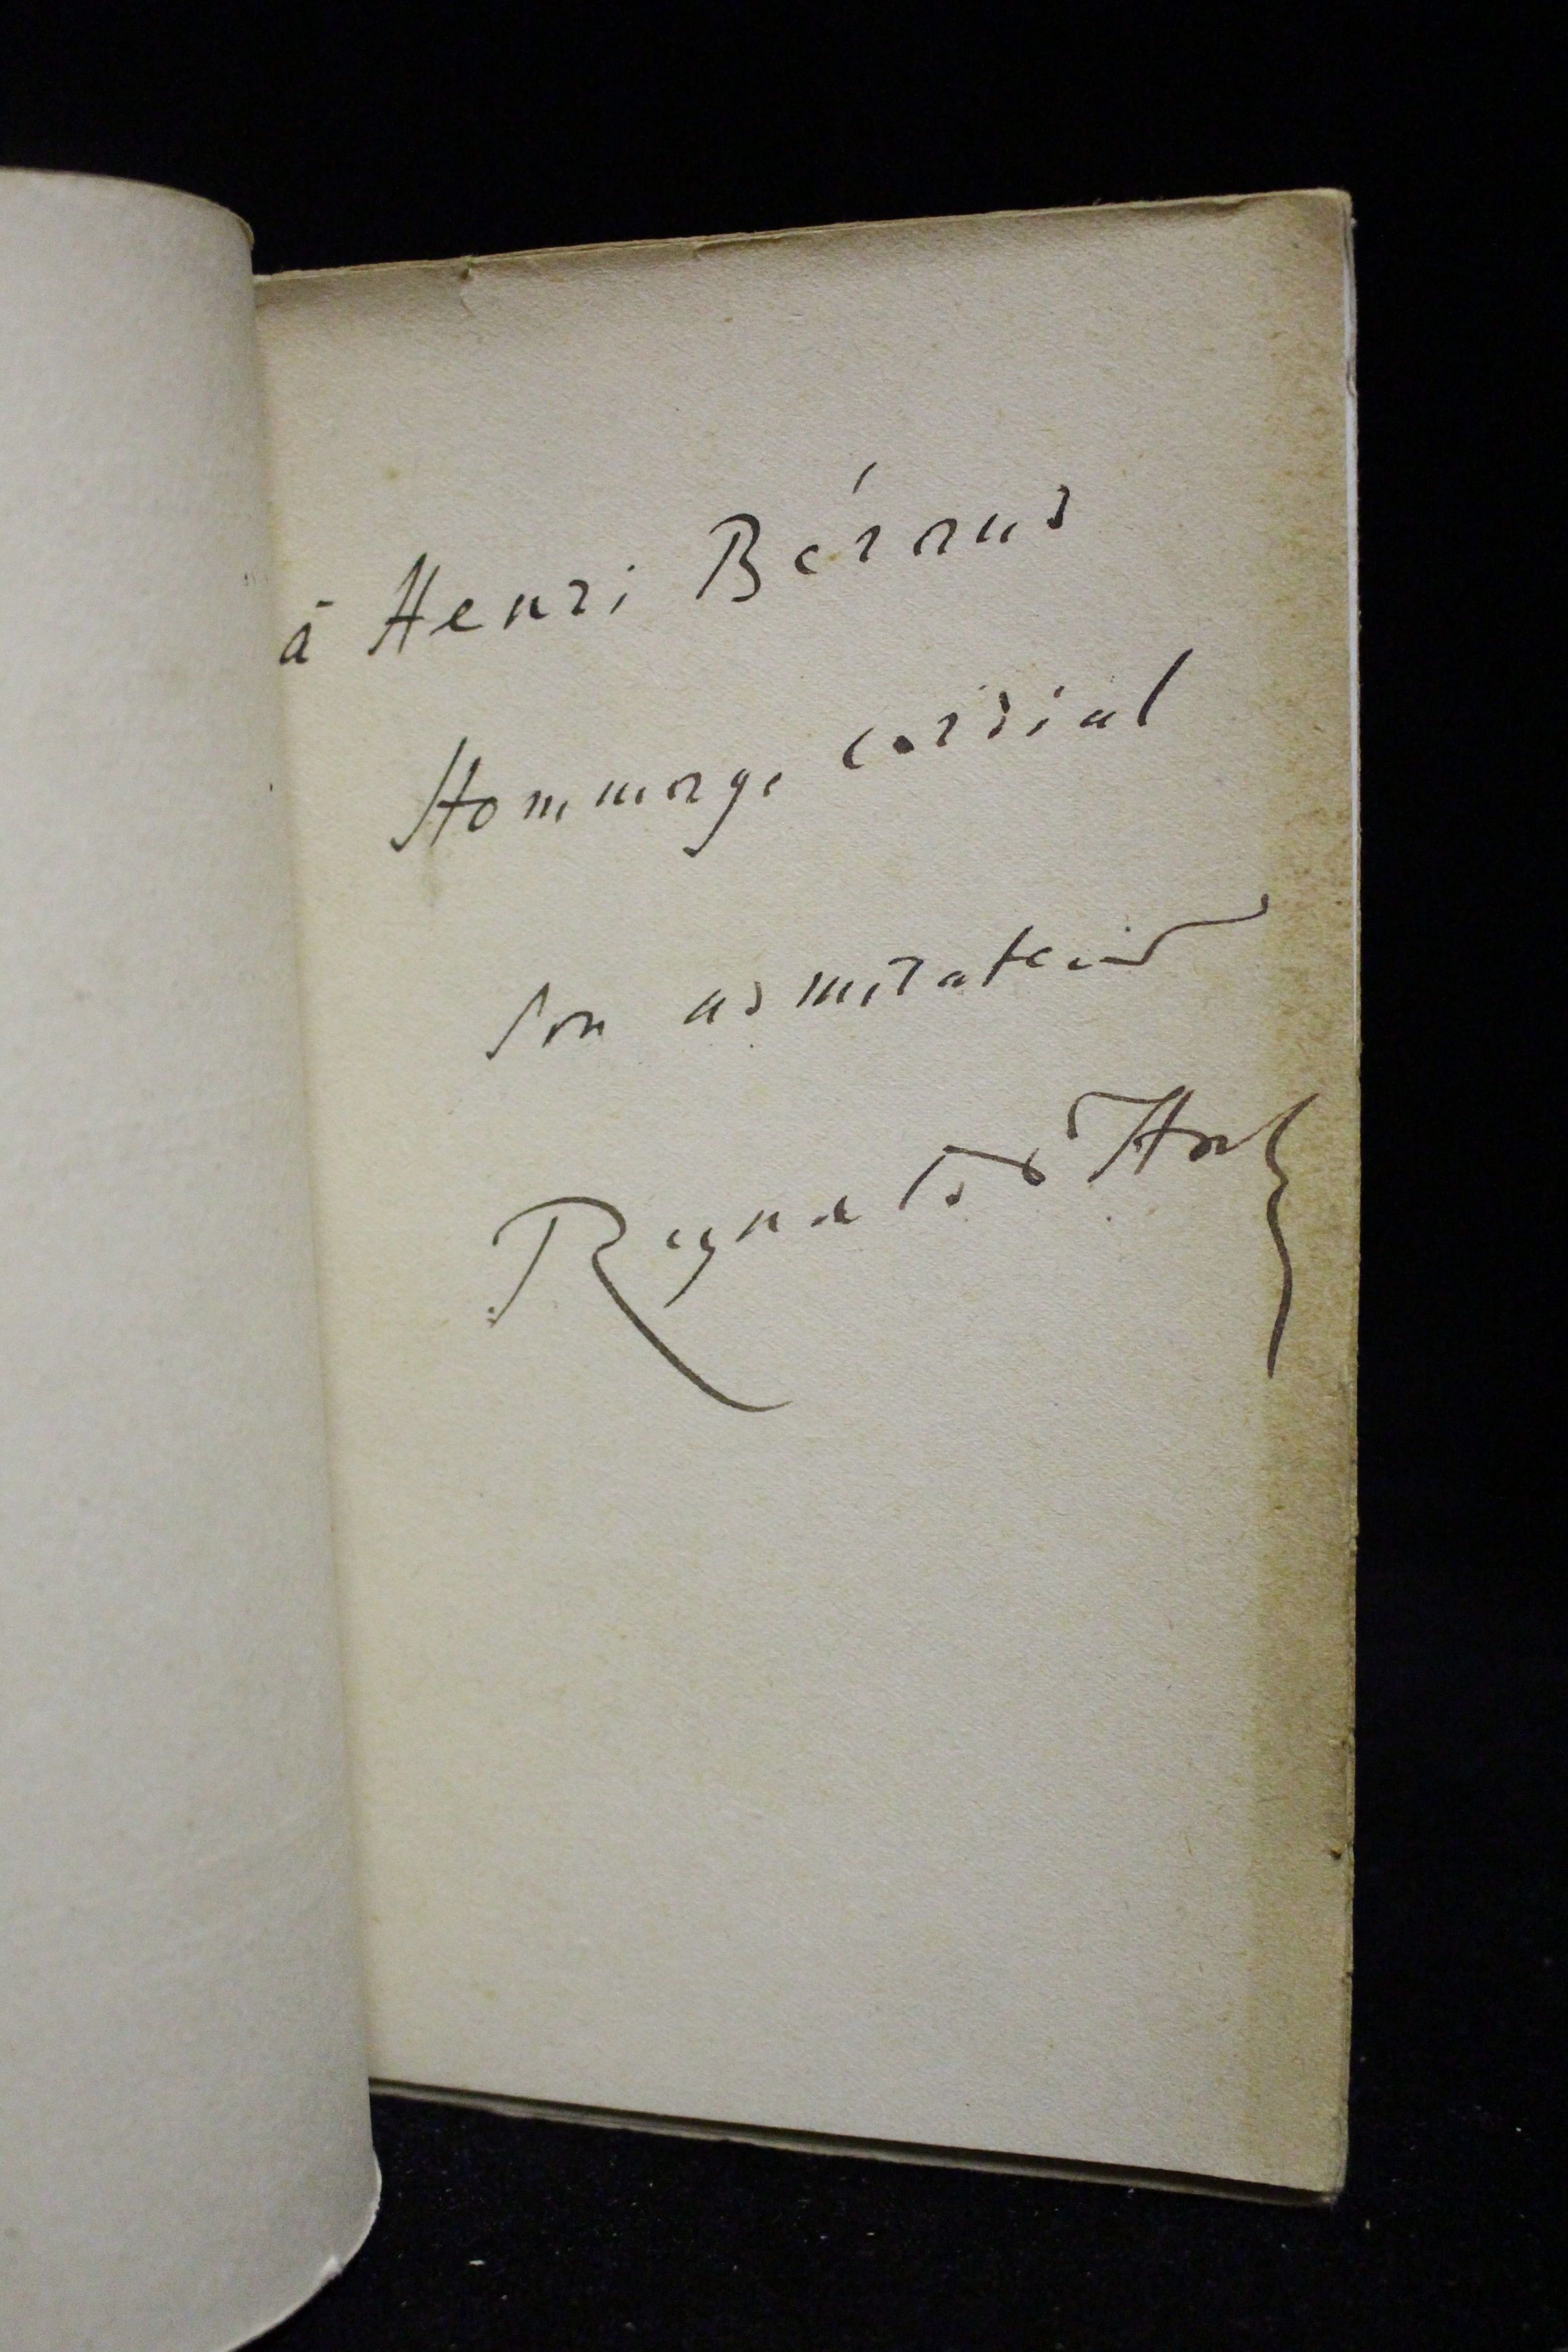 à Henri Béraud
Hommage cordial
Son admirateur
Reynaldo Hahn